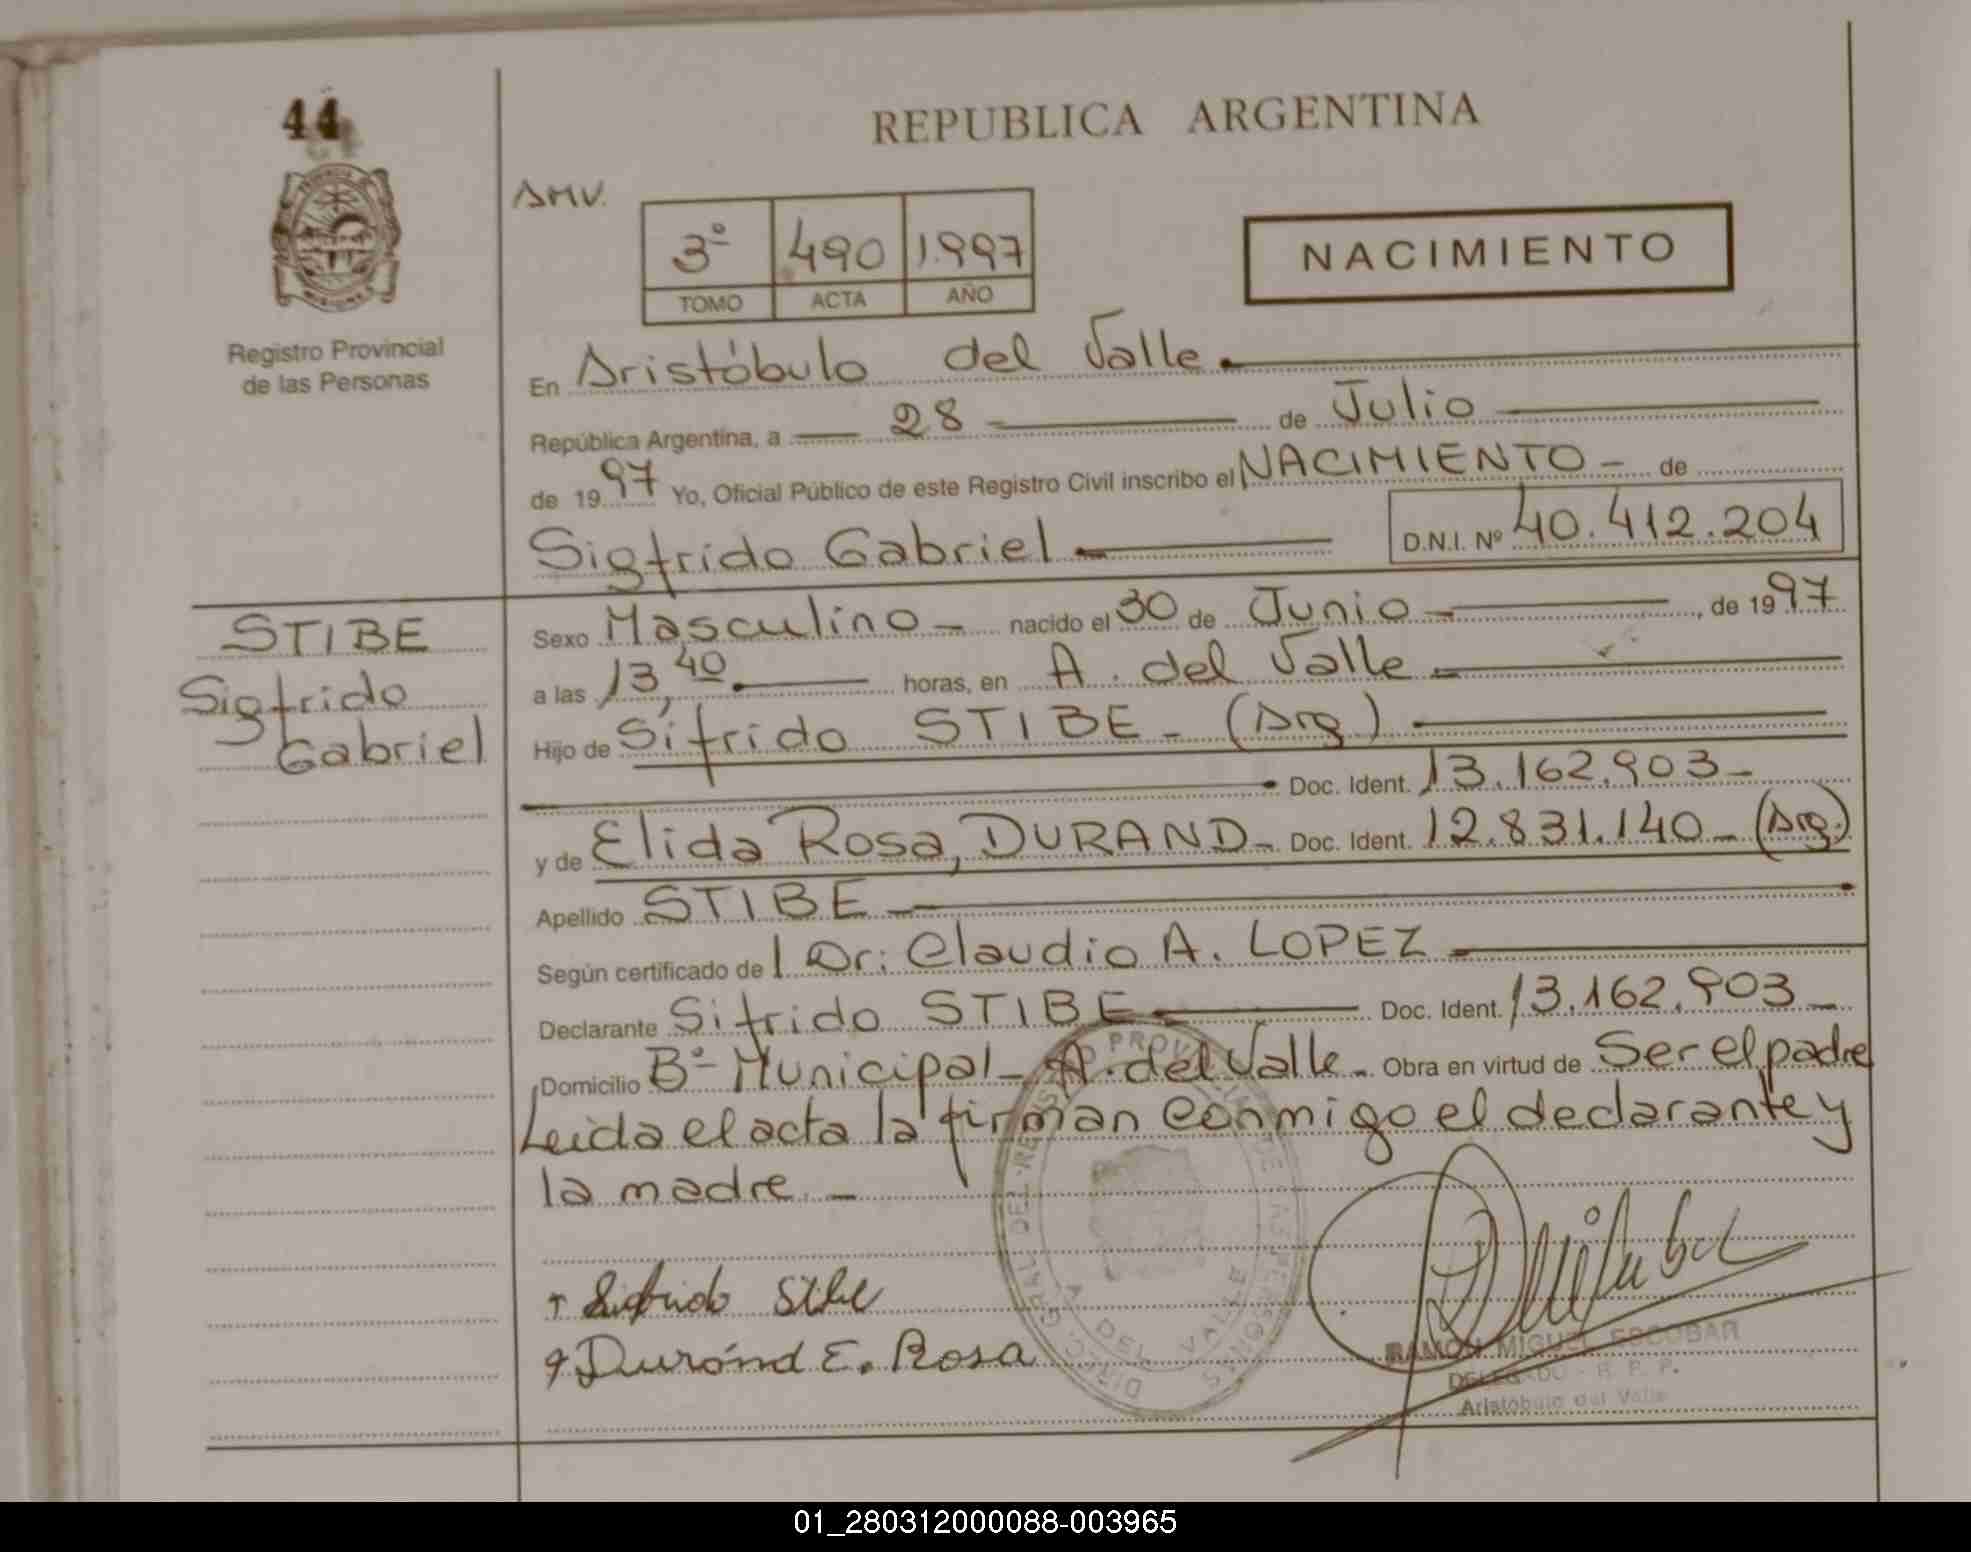 44
REPUBLICA ARGENTINA
AMV.
3º 490 1.997
TOMO ACTA AÑO
NACIMIENTO
Registro Provincial
de las Personas
En Aristóbulo del Valle
República Argentina, a 28 de Julio
de 1997 Yo, Oficial Público de este Registro Civil inscribo el NACIMIENTO - de
Sigfrido Gabriel D.N.I. Nº 40.412.204
STIBE
Sigfrido
Gabriel
Sexo Masculino - nacido el 30 de Junio - , de 1997
a las 13,40 horas, en A. del Valle -
Hijo de Sifrido STIBE - (Arg)
Doc. Ident. 13.162.903 -
y de Elida Rosa, DURAND - Doc. Ident. 12.831.140 - (Arg.)
Apellido STIBE -
Según certificado de l Dr: Claudio A. LOPEZ -
Declarante Sifrido STIBE Doc. Ident. 13.162.903 -
Domicilio Bº Municipal - A. del Valle - Obra en virtud de Ser el padre
Leida el acta la firman conmigo el declarante y
la madre. -
Sigfrido Stibe
Durand E. Rosa
DIREC. GRAL DEL REGISTRO PROVINCIAL DE LAS PERSONAS
A. DEL VALLE
RAMON MIGUEL ESCOBAR
DELEGADO - R. P. P.
Aristóbulo del Valle
01_280312000088-003965